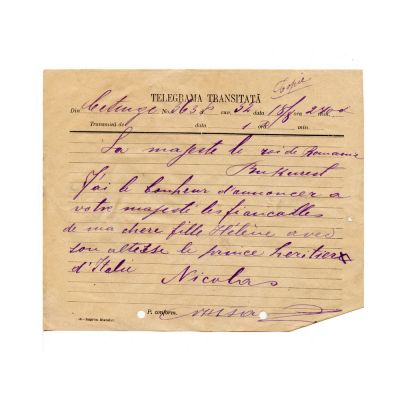 Copie
TELEGRAMA TRANSITATĂ
Din Cetinge No. 3638 cuv. 32 data 18/8 ora 2 min.
Transmisă de data ora min.
Sa majeste le roi de Romania
Bukurest
J'ai le bonheur d'annoncer a
votre majesté les fiancailles
de ma chere fille Hélène avec
son altesse le prince heritier
d'Italie
Nicolas
P. conform.